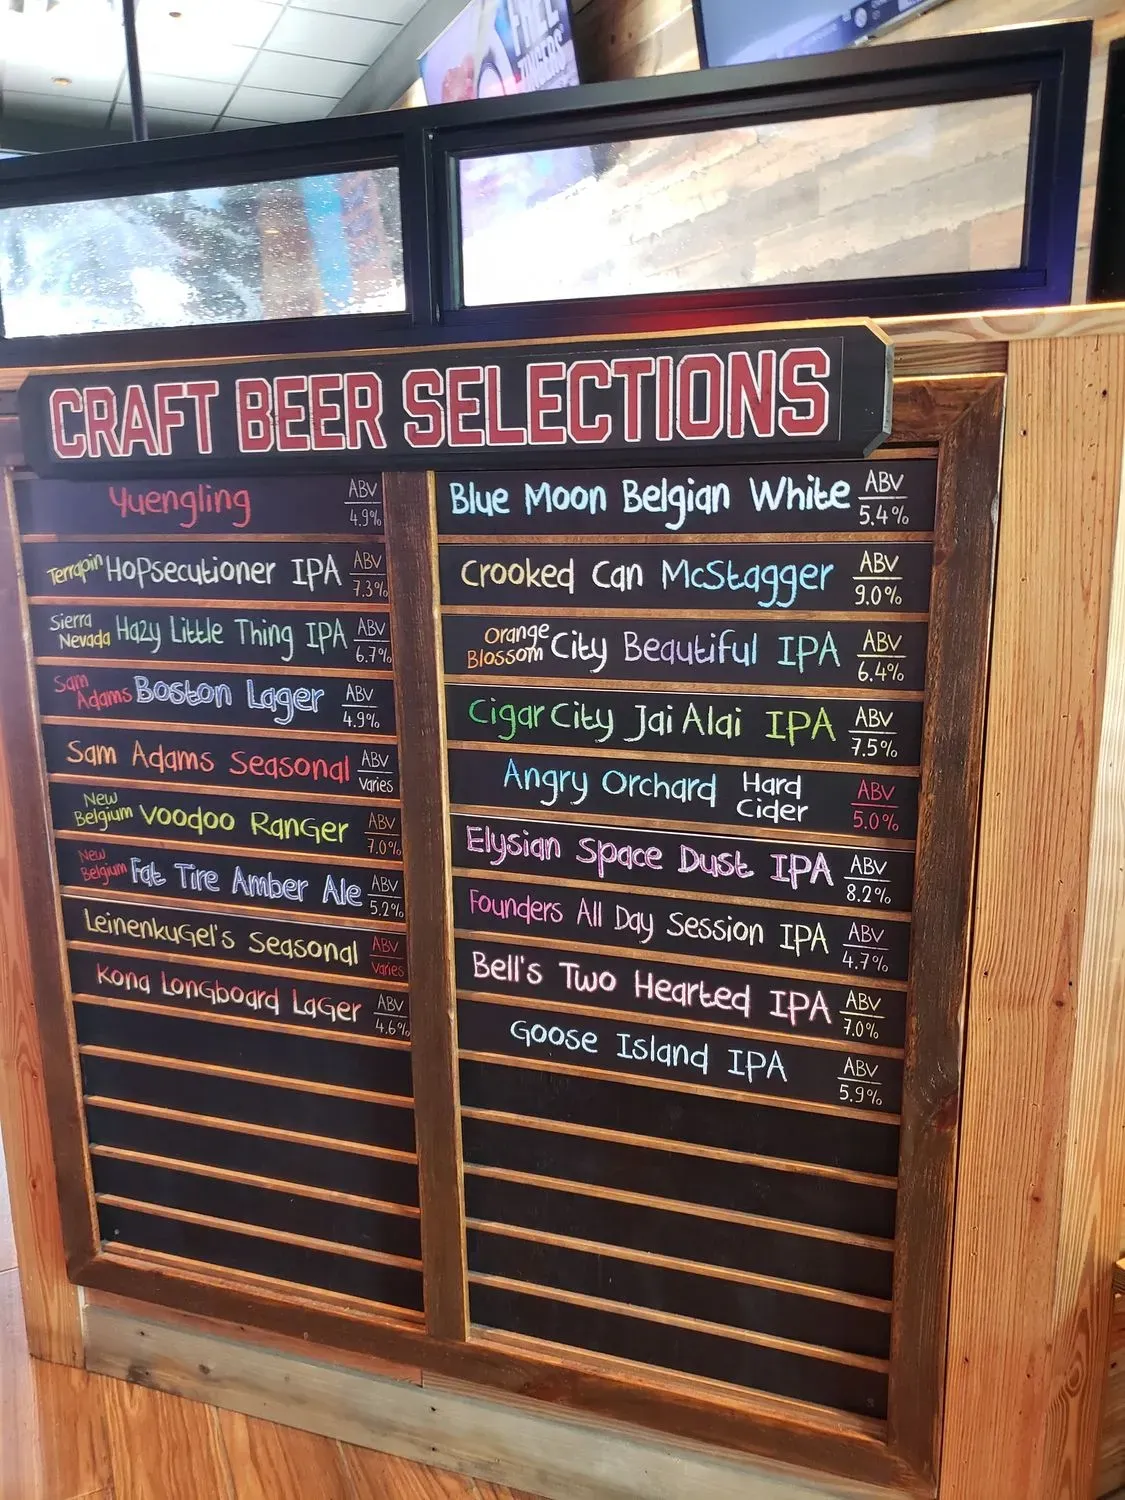 FREE
FINGERS
CRAFT BEER SELECTIONS
Yuengling ABV 4.9%
Terrapin Hopsecutioner IPA ABV 7.3%
Sierra Nevada Hazy Little Thing IPA ABV 6.7%
Sam Adams Boston Lager ABV 4.9%
Sam Adams Seasonal ABV varies
New Belgium Voodoo Ranger ABV 7.0%
New Belgium Fat Tire Amber Ale ABV 5.2%
Leinenkugel's Seasonal ABV varies
Kona Longboard Lager ABV 4.6%
Blue Moon Belgian White ABV 5.4%
Crooked Can McStagger ABV 9.0%
Orange Blossom City Beautiful IPA ABV 6.4%
Cigar City Jai Alai IPA ABV 7.5%
Angry Orchard Hard Cider ABV 5.0%
Elysian Space Dust IPA ABV 8.2%
Founders All Day Session IPA ABV 4.7%
Bell's Two Hearted IPA ABV 7.0%
Goose Island IPA ABV 5.9%